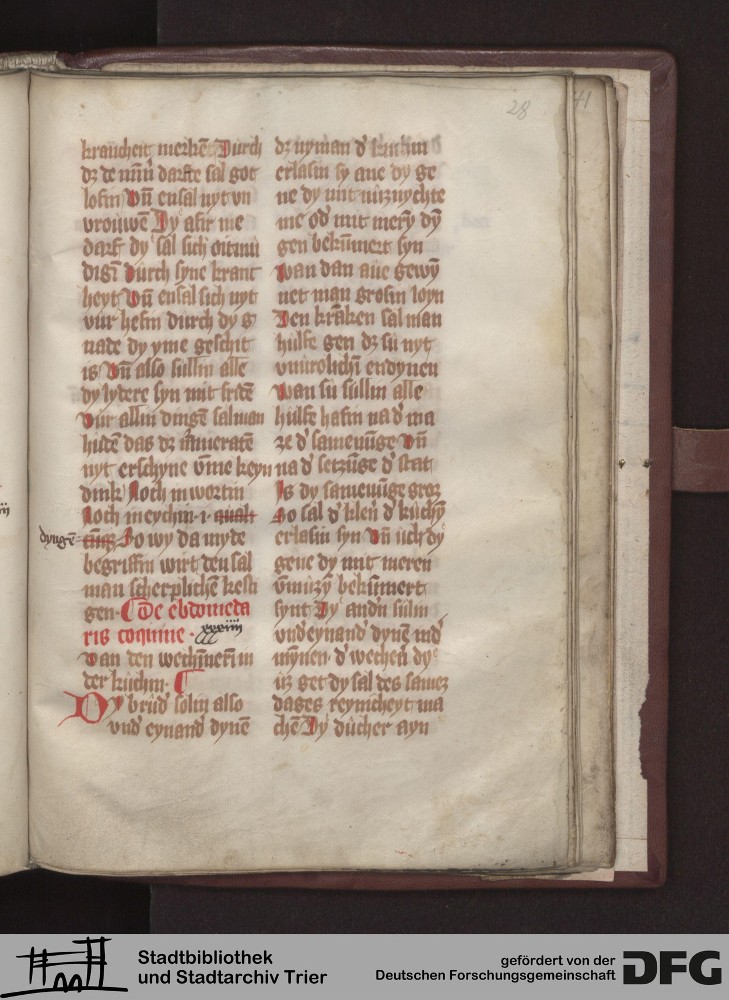 28
41
krancheit merkē Durch
dz de mīn̄ darffe sal got
lofin Vn̄ ensal nyt vn
vrouwē Dy afir me
darf dy sal sich oitmu
digī durch syne krant
heyt Vn̄ ensal sich nyt
vur hefin durch dy g
nade dy yme geschit
is Vn̄ also sullin alle
dy lydere syn mit fridē
Vur allin dingē sal man
hudē das dz murratē
nyt erschyne ūme keyn
dink Noch in wortin
Noch in eychin · i · quali
dyngē cūqz So wy da myde
begriffin wirt den sal
man scherplichē kesti
gen · De ebdomeda
riis coquine · xxxiiii
Van den wechīnerī in
der kuchin ·
Dy brud' solin also
vnd' eynand' dynē
dz nyman d' kuchin
erlasin sy ane dy ge
ne dy mit nuznychte
me od' mit merī dy
gen bekūmert syn
Wan dan aue gewy
net man grosin loyn
Den krāken sal man
hulfe gen dz su nyt
vnurolichī endynen
Wan su sullin alle
hulfe hafin na d' ma
ze d' samenūge Vn̄
na d' setzūge d' stat
Is dy samenūge groz
So sal d' klen' d' kuchī
erlasin syn Vn̄ uch dy
gene dy mit meren
v̄nuzzy bekūmert
synt Dy and'n suln
vnd' eynand' dynē mid'
mȳnen · d' wechen' dy
uz get dy sal des samez
dages reynicheyt ma
chē Dy ducher ayn
Stadtbibliothek
und Stadtarchiv Trier
gefördert von der
Deutschen Forschungsgemeinschaft
DFG